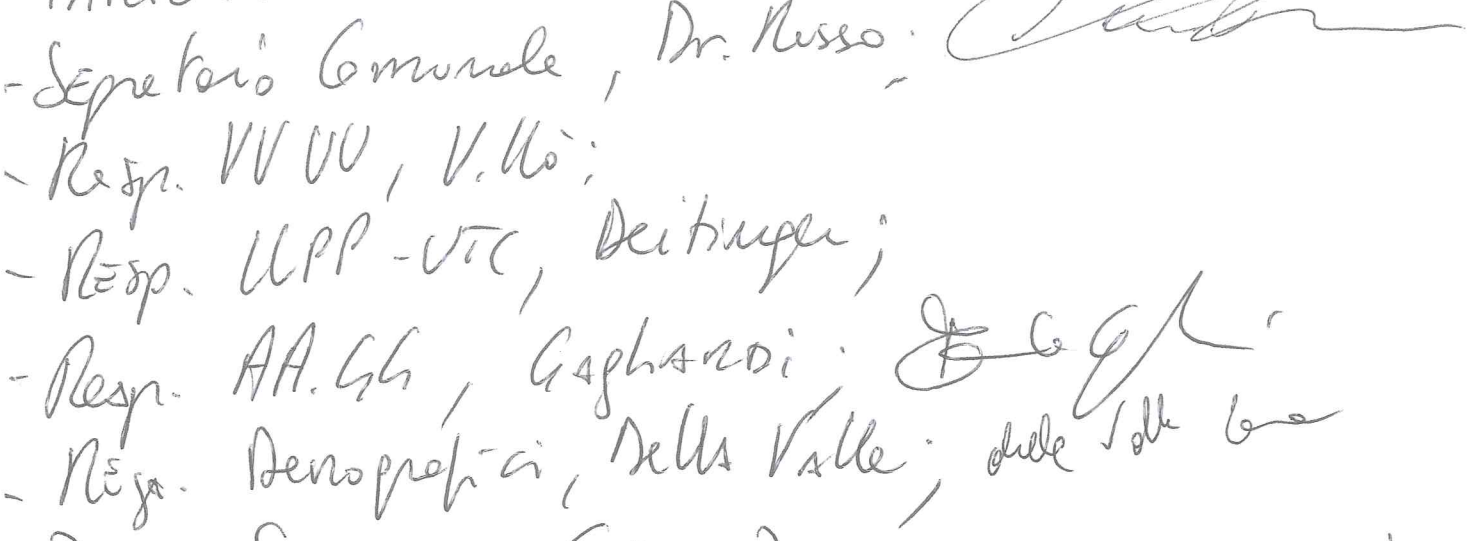 - Segretario Comunale, Dr. Russo;
- Resp. VV UU, Villò;
- Resp. LLPP - UTC, Deitinger;
- Resp. AA.GG, Gagliardi;
- Resp. Demografici, Della Valle; della Valle